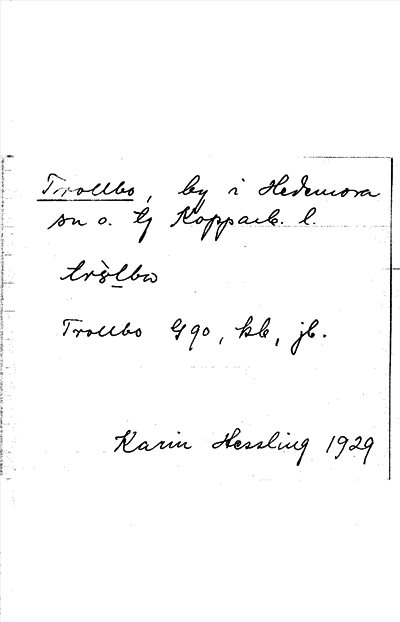 Trollbo, by i Hedemora
sn o. tg Kopparb. l.
Trollbo G90, kb, jb.
Karin Hessling 1929